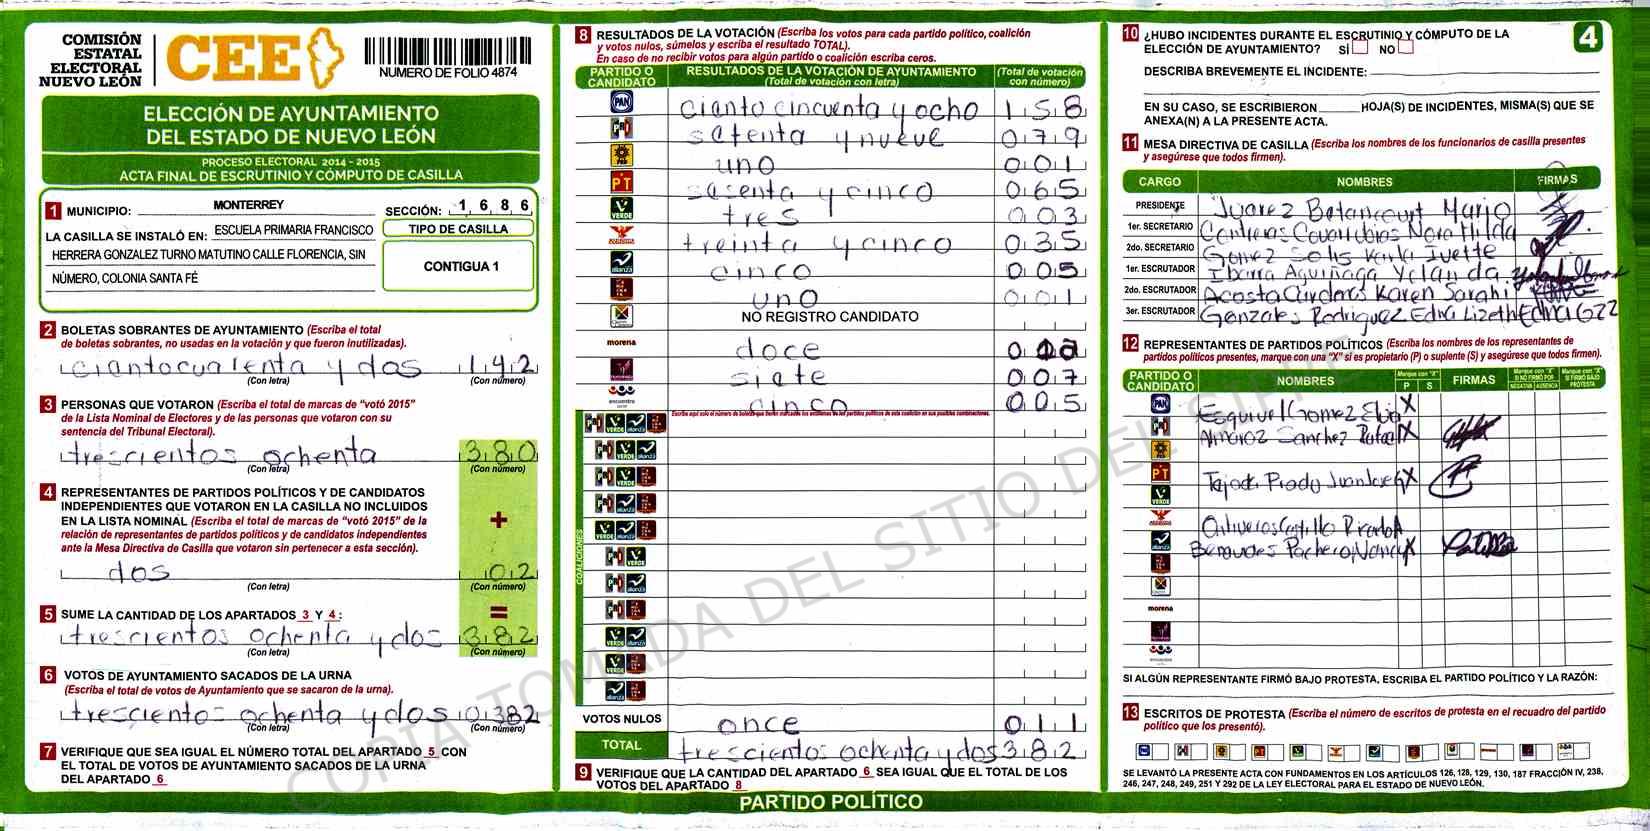 COMISIÓN
ESTATAL
ELECTORAL
NUEVO LEÓN
CEE
NUMERO DE FOLIO 4874
ELECCIÓN DE AYUNTAMIENTO
DEL ESTADO DE NUEVO LEÓN
PROCESO ELECTORAL 2014 - 2015
ACTA FINAL DE ESCRUTINIO Y CÓMPUTO DE CASILLA
1 MUNICIPIO: MONTERREY SECCIÓN: 1 6 8 6
LA CASILLA SE INSTALÓ EN: ESCUELA PRIMARIA FRANCISCO
HERRERA GONZALEZ TURNO MATUTINO CALLE FLORENCIA, SIN
NÚMERO, COLONIA SANTA FÉ
TIPO DE CASILLA
CONTIGUA 1
2 BOLETAS SOBRANTES DE AYUNTAMIENTO (Escriba el total
de boletas sobrantes, no usadas en la votación y que fueron inutilizadas).
cientocuarenta y dos 142
(Con letra) (Con número)
3 PERSONAS QUE VOTARON (Escriba el total de marcas de "votó 2015"
de la Lista Nominal de Electores y de las personas que votaron con su
sentencia del Tribunal Electoral).
trescientos ochenta 380
(Con letra) (Con número)
4 REPRESENTANTES DE PARTIDOS POLÍTICOS Y DE CANDIDATOS
INDEPENDIENTES QUE VOTARON EN LA CASILLA NO INCLUIDOS
EN LA LISTA NOMINAL (Escriba el total de marcas de "votó 2015" de la
relación de representantes de partidos políticos y de candidatos independientes
ante la Mesa Directiva de Casilla que votaron sin pertenecer a esta sección).
+
dos 02
(Con letra) (Con número)
5 SUME LA CANTIDAD DE LOS APARTADOS 3 Y 4: =
trescientos ochenta y dos 382
(Con letra) (Con número)
6 VOTOS DE AYUNTAMIENTO SACADOS DE LA URNA
(Escriba el total de votos de Ayuntamiento que se sacaron de la urna).
trescientos ochenta y dos 0382
(Con letra) (Con número)
7 VERIFIQUE QUE SEA IGUAL EL NÚMERO TOTAL DEL APARTADO 5 CON
EL TOTAL DE VOTOS DE AYUNTAMIENTO SACADOS DE LA URNA
DEL APARTADO 6
8 RESULTADOS DE LA VOTACIÓN (Escriba los votos para cada partido político, coalición
y votos nulos, súmelos y escriba el resultado TOTAL).
En caso de no recibir votos para algún partido o coalición escriba ceros.
PARTIDO O CANDIDATO
RESULTADOS DE LA VOTACIÓN DE AYUNTAMIENTO
(Total de votación con letra)
(Total de votación con número)
PAN ciento cincuenta y ocho 158
PRI setenta y nueve 079
PRD uno 001
PT sesenta y cinco 065
VERDE tres 003
treinta y cinco 035
alianza cinco 005
uno 001
NO REGISTRO CANDIDATO
morena doce 0
siete 007
encuentro cinco 005
COALICIONES
VOTOS NULOS once 011
TOTAL trescientos ochenta y dos 382
9 VERIFIQUE QUE LA CANTIDAD DEL APARTADO 6 SEA IGUAL QUE EL TOTAL DE LOS
VOTOS DEL APARTADO 8
PARTIDO POLÍTICO
4
10 ¿HUBO INCIDENTES DURANTE EL ESCRUTINIO Y CÓMPUTO DE LA
ELECCIÓN DE AYUNTAMIENTO? SÍ NO
DESCRIBA BREVEMENTE EL INCIDENTE:
EN SU CASO, SE ESCRIBIERON HOJA(S) DE INCIDENTES, MISMA(S) QUE SE
ANEXA(N) A LA PRESENTE ACTA.
11 MESA DIRECTIVA DE CASILLA (Escriba los nombres de los funcionarios de casilla presentes
y asegúrese que todos firmen).
CARGO NOMBRES FIRMAS
PRESIDENTE Juarez Betancourt Mario
1er. SECRETARIO Contreras Covarrubias Nora Hilda
2do. SECRETARIO Gomez Solis Karla Ivette
1er. ESCRUTADOR Ibarra Aguiñaga Yolanda
2do. ESCRUTADOR Acosta Cardenas Karen Sarahi
3er. ESCRUTADOR Gonzales Rodriguez Edna Lizeth Edna Gzz
12 REPRESENTANTES DE PARTIDOS POLÍTICOS (Escriba los nombres de los representantes de
partidos políticos presentes, marque con una "X" si es propietario (P) o suplente (S) y asegúrese que todos firmen).
PARTIDO O CANDIDATO
NOMBRES
Marque con "X"
P S
FIRMAS
Marque con "X" SI NO FIRMÓ POR
NEGATIVA AUSENCIA
Marque con "X" SI FIRMÓ BAJO PROTESTA
PAN Esquivel Gomez X
PRI Sanchez Rafael X
PRD
PT Prado Juan X
VERDE
Castillo Ricardo
alianza Pacheco Nancy X
morena
SI ALGÚN REPRESENTANTE FIRMÓ BAJO PROTESTA, ESCRIBA EL PARTIDO POLÍTICO Y LA RAZÓN:
13 ESCRITOS DE PROTESTA (Escriba el número de escritos de protesta en el recuadro del partido
político que los presentó).
SE LEVANTÓ LA PRESENTE ACTA CON FUNDAMENTOS EN LOS ARTÍCULOS 126, 128, 129, 130, 187 FRACCIÓN IV, 238,
246, 247, 248, 249, 251 Y 292 DE LA LEY ELECTORAL PARA EL ESTADO DE NUEVO LEÓN.
COPIA TOMADA DEL SITIO DEL SIPRE